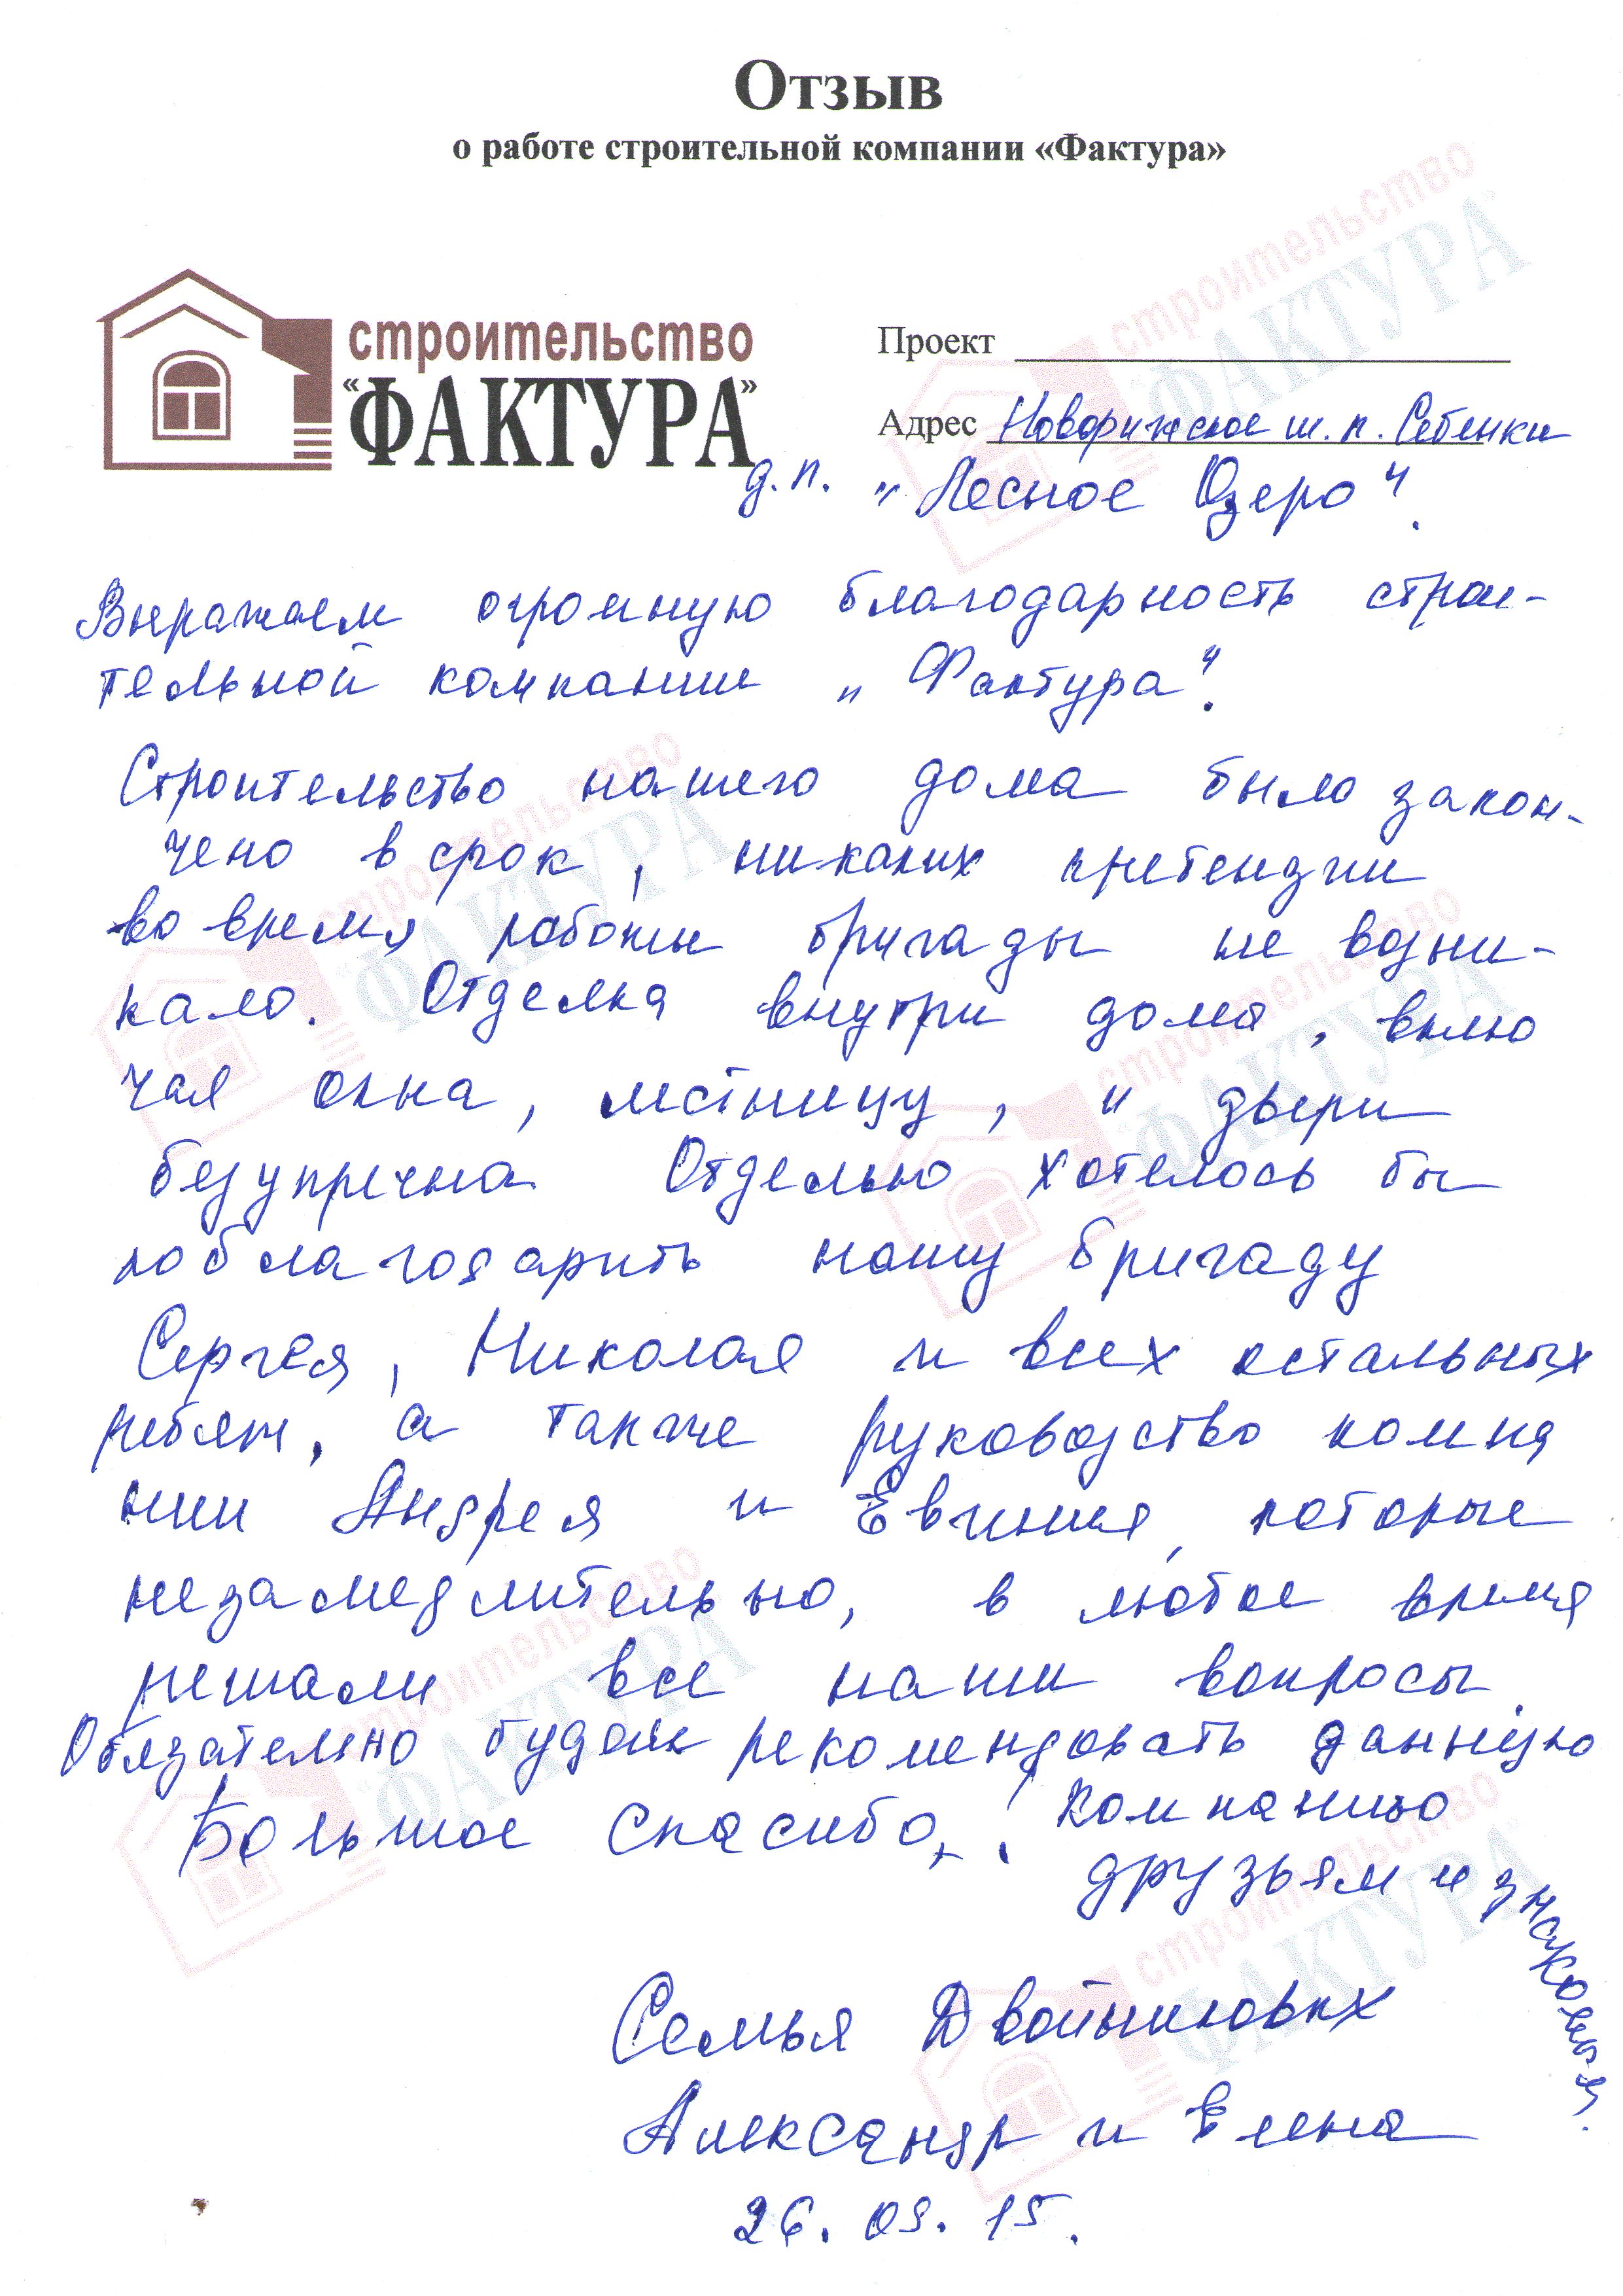 Отзыв
о работе строительной компании «Фактура»
строительство
"ФАКТУРА"
Проект
Адрес Новорижское ш. п. Себенки
д.п. „Лесное Озеро".
Выражаем огромную благодарность строи-
тельной компании „Фактура".
Строительство нашего дома было закон-
чено в срок, никаких претензии
во время работы бригады не возни-
кало. Отделка внутри дома, вклю
чая окна, лестницу, и двери
безупречна Отдельно хотелось бы
поблагодарить нашу бригаду
Сергея, Николая и всех остальных
ребят, а также руководство компа
нии Андрея и Евгения, которые
незамедлительно, в любое время
решали все наши вопросы.
Обязательно будем рекомендовать данную
Большое спасибо, компанию
друзьям и знакомым.
Семья Двойниковых
Александр и Елена
26. 09. 15.